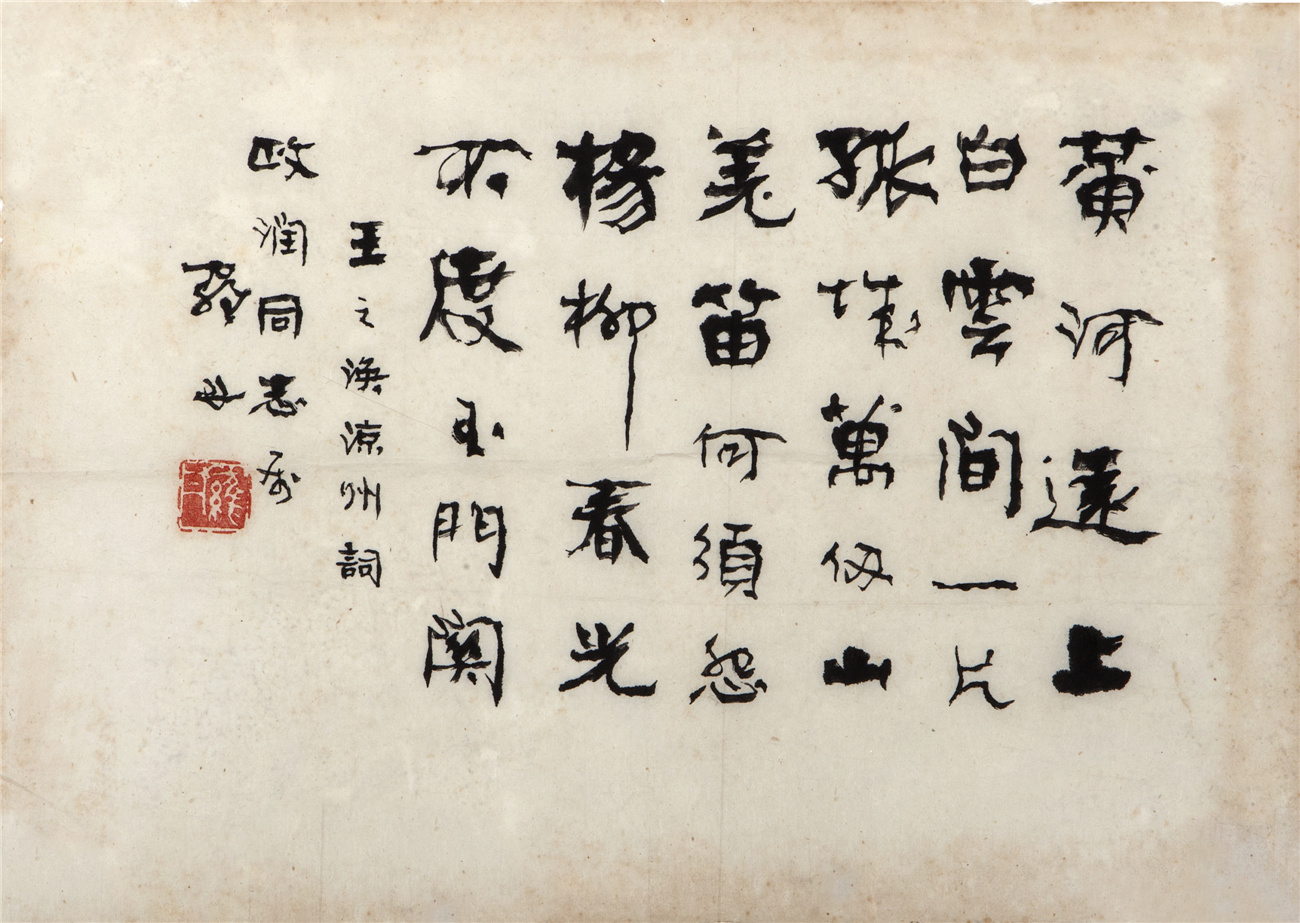 黄河遠上
白雲間一片
孤城萬仞山
羌笛何須怨
楊柳春光
不度玉門關
王之渙涼州詞
政润同志属
羅丹